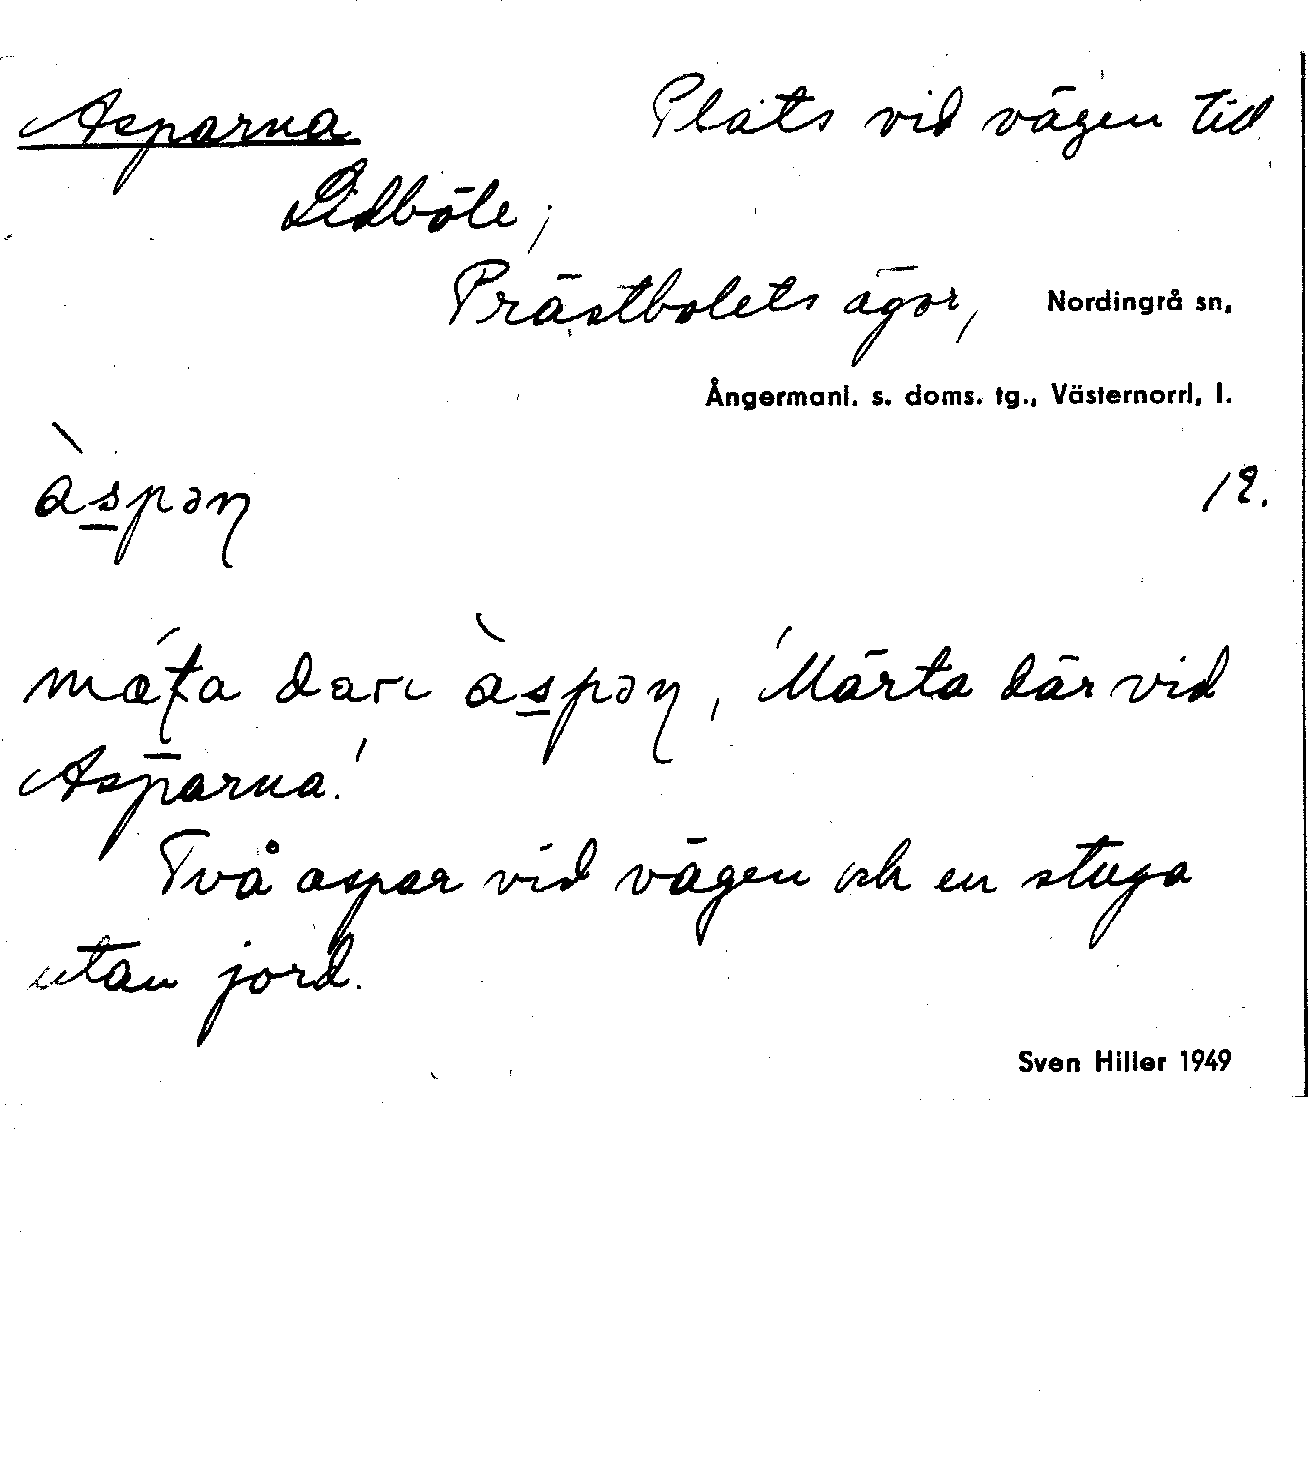 Asparna Plats vid vägen till
Lidböle,
Prästbolets ägor, Nordingrå sn,
Ångermanl. s. doms. tg., Västernorrl, l.
àspəɳ 12.
mǽʈa darι àspəɳ, 'Märta där vid
Asparna.'
Två aspar vid vägen och en stuga
utan jord.
Sven Hiller 1949